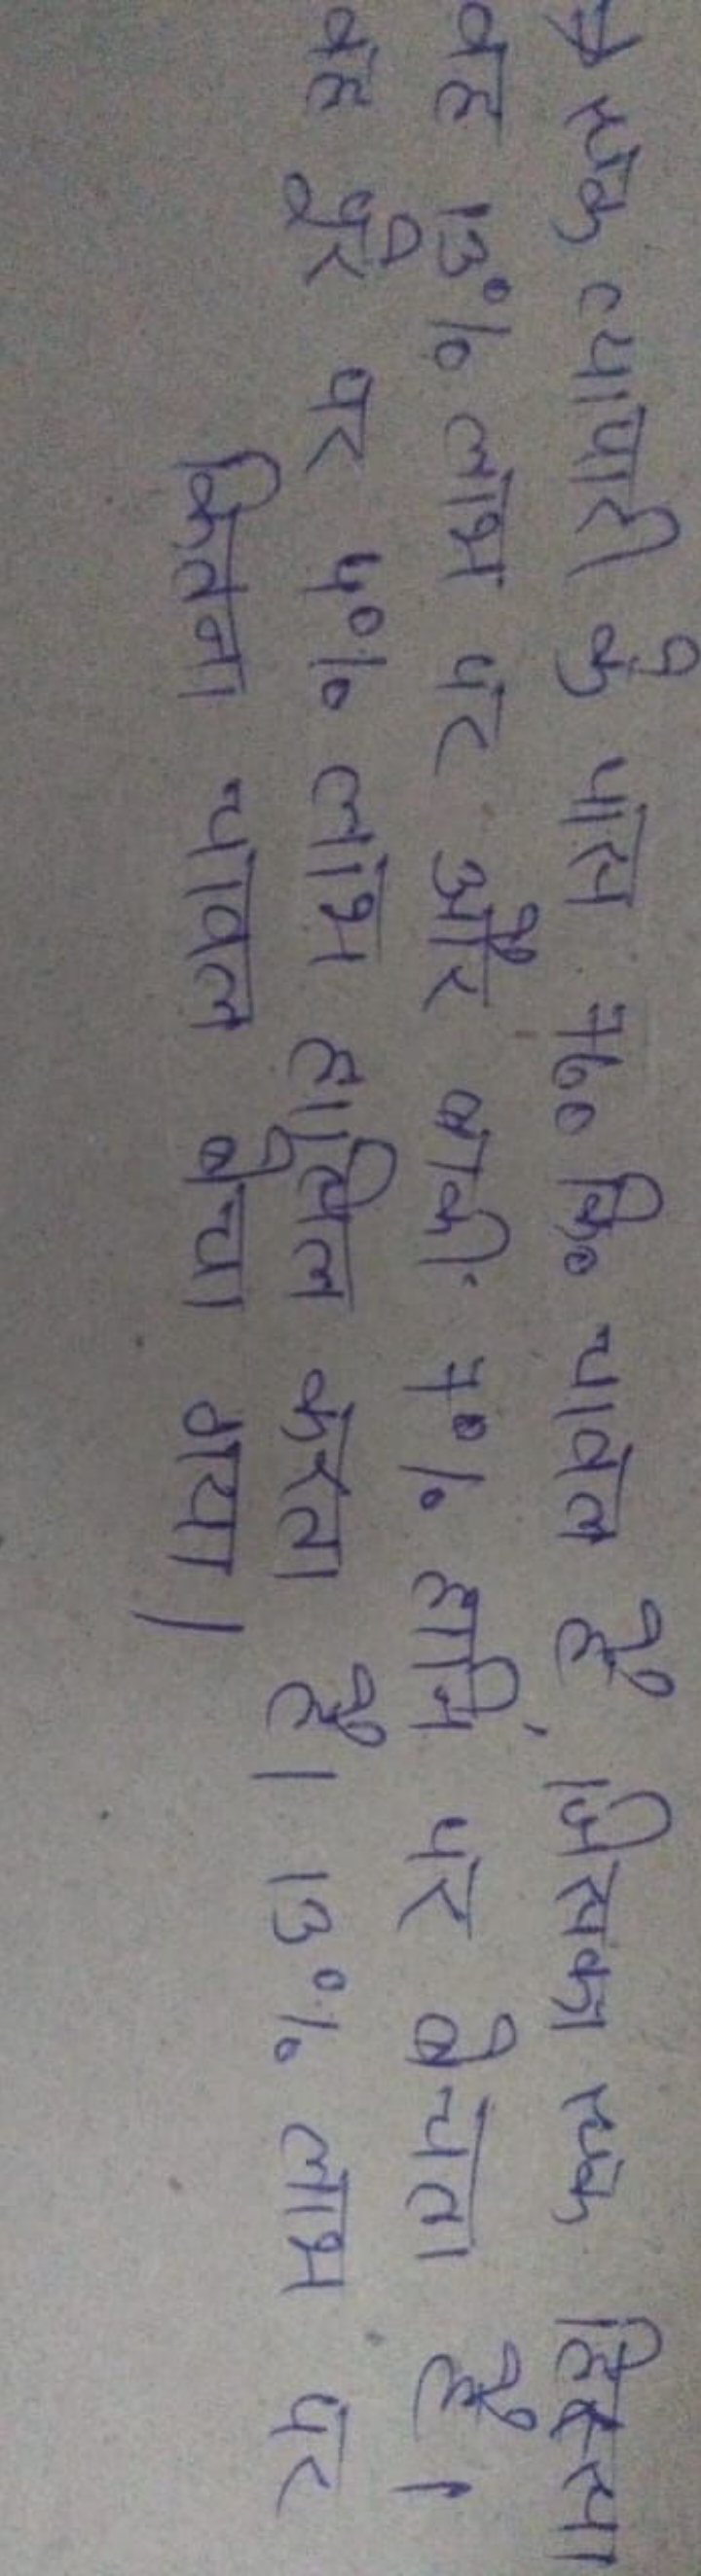 → एक व्यापारी के पास 760 कि० चावल है, जिसका एक हिस्सा
वह 13% लाभ पर और बाकी 7% हानि पर बेचता है।
वह पुरे पर 4% लाभ हासिल करता है। 13% लाभ पर
कितना चावल बेचा गया।